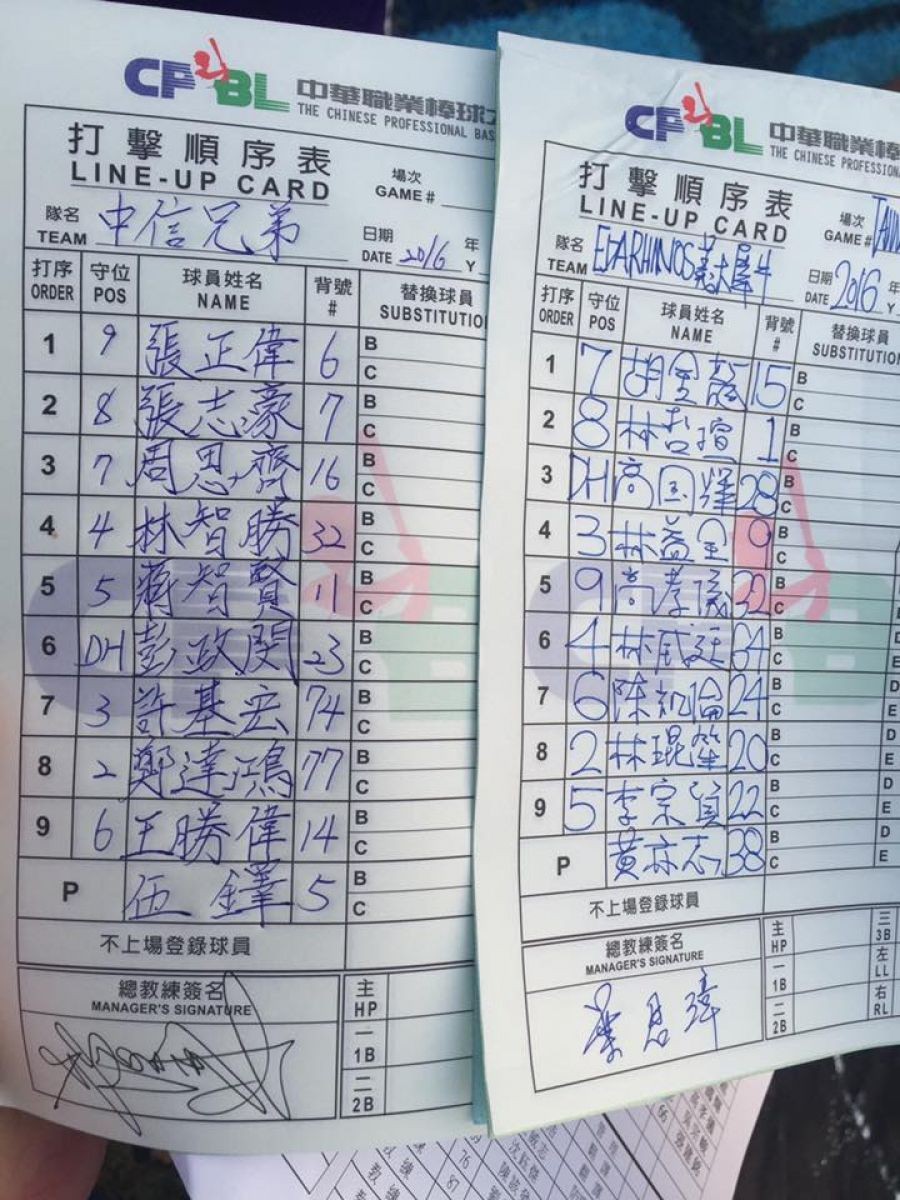 CPBL 中華職業棒球
THE CHINESE PROFESSIONAL BAS
打擊順序表
LINE-UP CARD
場次
GAME #
隊名
TEAM 中信兄弟
日期 年
DATE 2016 Y
打序 守位 球員姓名 背號 替換球員
ORDER POS NAME # SUBSTITUTIO
1 9 張正偉 6 B C
2 8 張志豪 7 B C
3 7 周思齊 16 B C
4 4 林智勝 32 B C
5 5 蔣智賢 11 B C
6 DH 彭政閔 23 B C
7 3 許基宏 74 B C
8 2 鄭達鴻 77 B C
9 6 王勝偉 14 B C
P 伍鐸 5 B C
不上場登錄球員
總教練簽名
MANAGER'S SIGNATURE
主
HP
一
1B
二
2B
CPBL 中華職業棒
THE CHINESE PROFESSIONA
打擊順序表
LINE-UP CARD
場次
GAME #
隊名
TEAM EDARHINOS義大犀牛
日期 年
DATE 2016 Y
打序 守位 球員姓名 背號 替換球員
ORDER POS NAME # SUBSTITUTIO
1 7 胡金龍 15 B C
2 8 林哲瑄 1 B C
3 DH 高国輝 28 B C
4 3 林益全 9 B C
5 9 高孝儀 32 B C
6 4 林威廷 34 B C D E
7 6 陳凱倫 24 B C D E
8 2 林琨笙 20 B C D E
9 5 李宗賢 22 B C D E
P 黃亦志 38 B C D E
不上場登錄球員
總教練簽名
MANAGER'S SIGNATURE
葉君璋
主
HP
一
1B
二
2B
三
3B
左
LL
右
RL